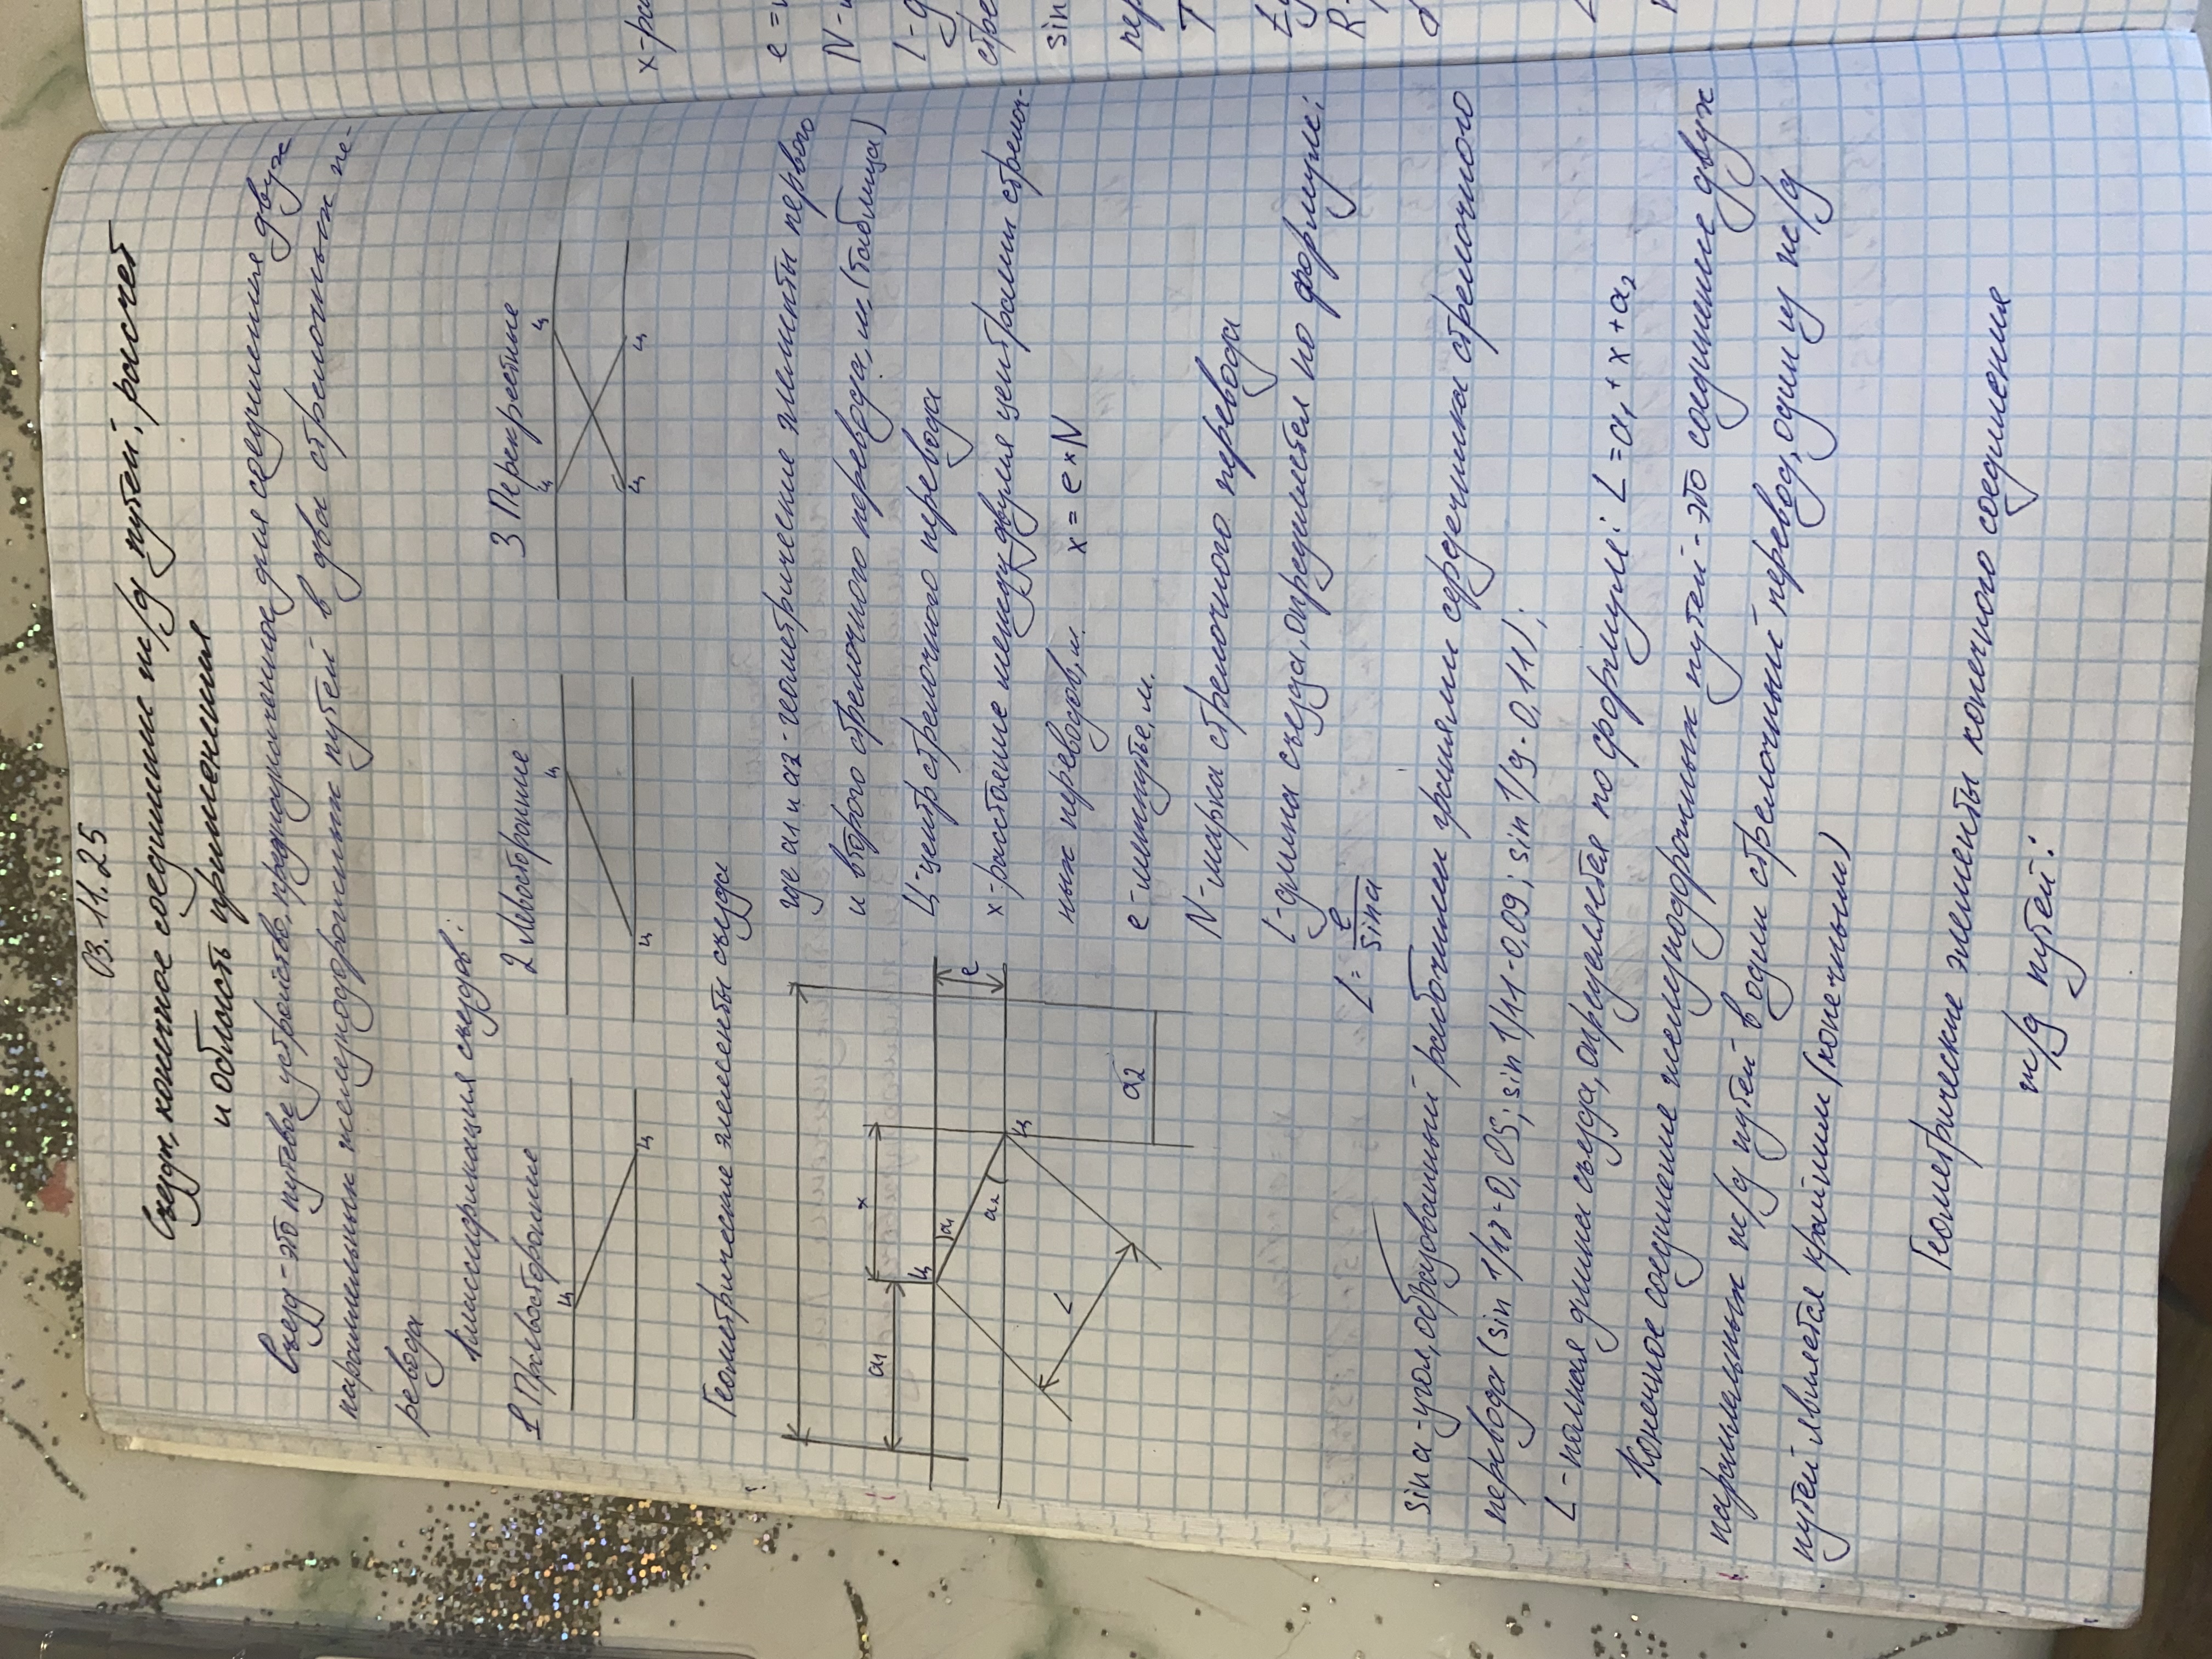 03.11.25
Съезды, конечное соединение ж/д путей; расчет
и область применения
Съезд - это путевое устройство, предназначенное для соединения двух
параллельных железнодорожных путей в два стрелочных пе-
ревода
Классификация съездов:
1 Правосторонние 2 Левосторонние 3 Перекрестные
ц ц ц ц
ц ц ц ц
Геометрические элементы съезда
a1 x
ц a1 e
a2 ц
L a2
где a1 и a2 - геометрические элементы первого
и второго стрелочного перевода, м, (таблица)
Ц - центр стрелочного перевода
x - расстояние между двумя центрами стрелоч-
ных переводов, м. x = e × N
e - междупутье, м.
N - марка стрелочного перевода
L - длина съезда, определяется по формуле:
L = e/sin a
sin a - угол, образованный рабочими гранями сердечника стрелочного
перевода (sin 1/18 - 0,05; sin 1/11 - 0,09; sin 1/9 - 0,11).
L - полная длина съезда, определяется по формуле: L = a1 + x + a2
Конечное соединение железнодорожных путей - это соединение двух
параллельных ж/д путей в один стрелочный перевод, один из ж/д
путей является крайним (конечным)
Геометрические элементы конечного соединения
ж/д путей:
x - ра
e =
N -
L - д
стре
sin
пер
T
R -